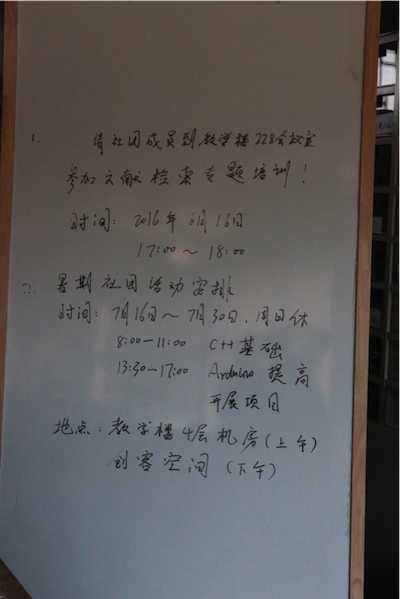 1. 请社团成员到教学楼228会议室
参加文献检索专题培训！
时间：2016年6月16日
17:00～18:00
2. 暑期社团活动安排
时间：7月16日～7月30日，周日休
8:00-11:00 C++基础
13:30-17:00 Arduino 提高
开展项目
地点：教学楼4层机房(上午)
创客空间(下午)